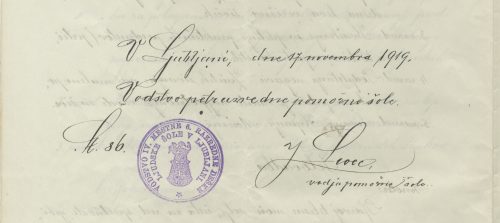 V Ljubljani, dne 17. novembra 1919.
Vodstvo petrazredne pomožne šole.
Št. 86.
VODSTVO IV. MESTNE 6. RAZREDNE DEŠKE LJUDSKE ŠOLE V LJUBLJANI
vodja pomožne šole.